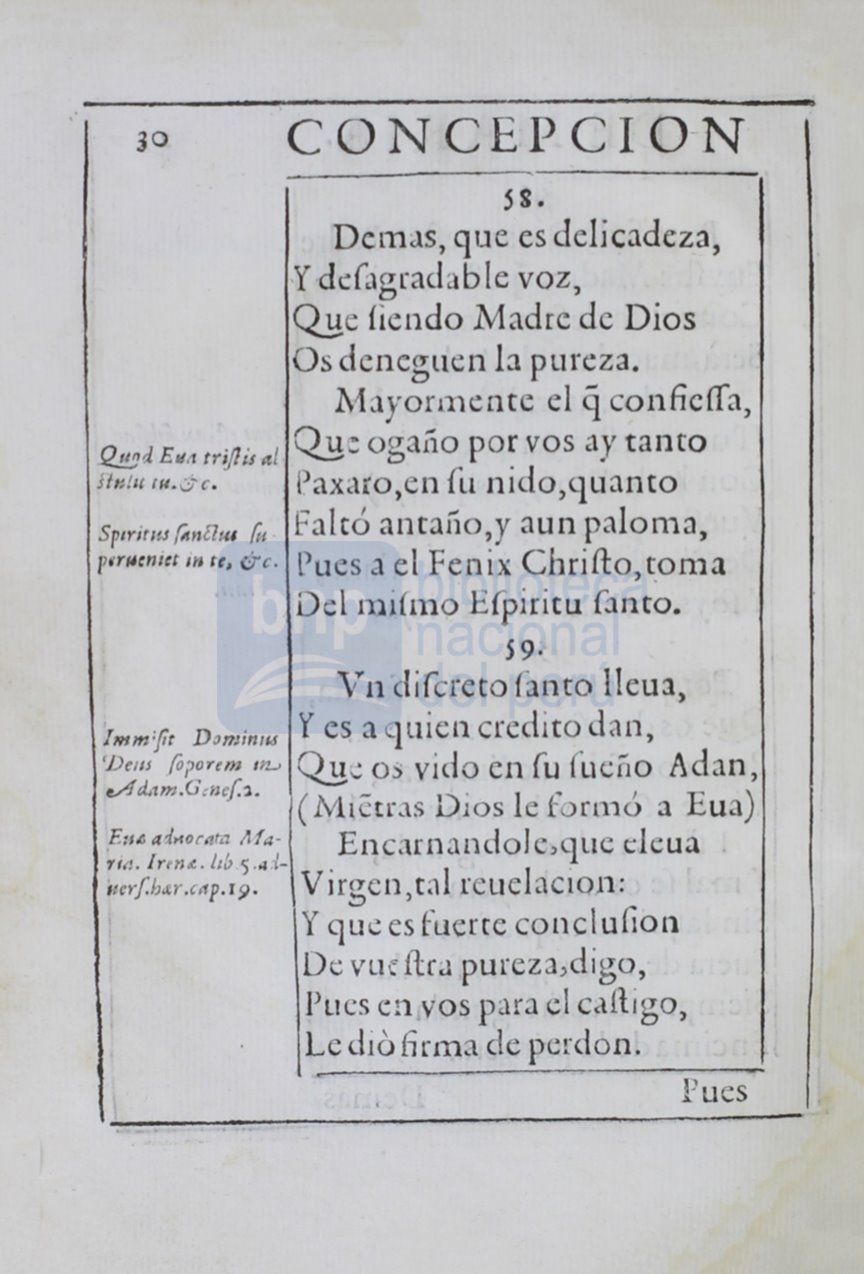 30
CONCEPCION
58.
Demas, que es delicadeza,
Y deſagradable voz,
Que ſiendo Madre de Dios
Os deneguen la pureza.
Mayormente el q̃ confieſſa,
Que ogaño por vos ay tanto
Paxaro,en ſu nido,quanto
Faltó antaño,y aun paloma,
Pues a el Fenix Chriſto,toma
Del miſmo Eſpiritu ſanto.
59.
Vn diſcreto ſanto lleua,
Y es a quien credito dan,
Que os vido en ſu ſueño Adan,
(Miẽtras Dios le formó a Eua)
Encarnandole,que eleua
Virgen,tal reuelacion:
Y que es fuerte concluſion
De vueſtra pureza,digo,
Pues en vos para el caſtigo,
Le diò firma de perdon.
Pues
Quod Eua triſtis al
ſtulit tu.&c.
Spiritus ſanctus ſu
perueniet in te, &c.
Immiſit Dominus
Deus ſoporem in
Adam.Geneſ.2.
Euæ aduocata Ma-
ria. Irenæ. lib 5.ad-
uerſ.hær.cap.19.
bnp
biblioteca
nacional
del perú